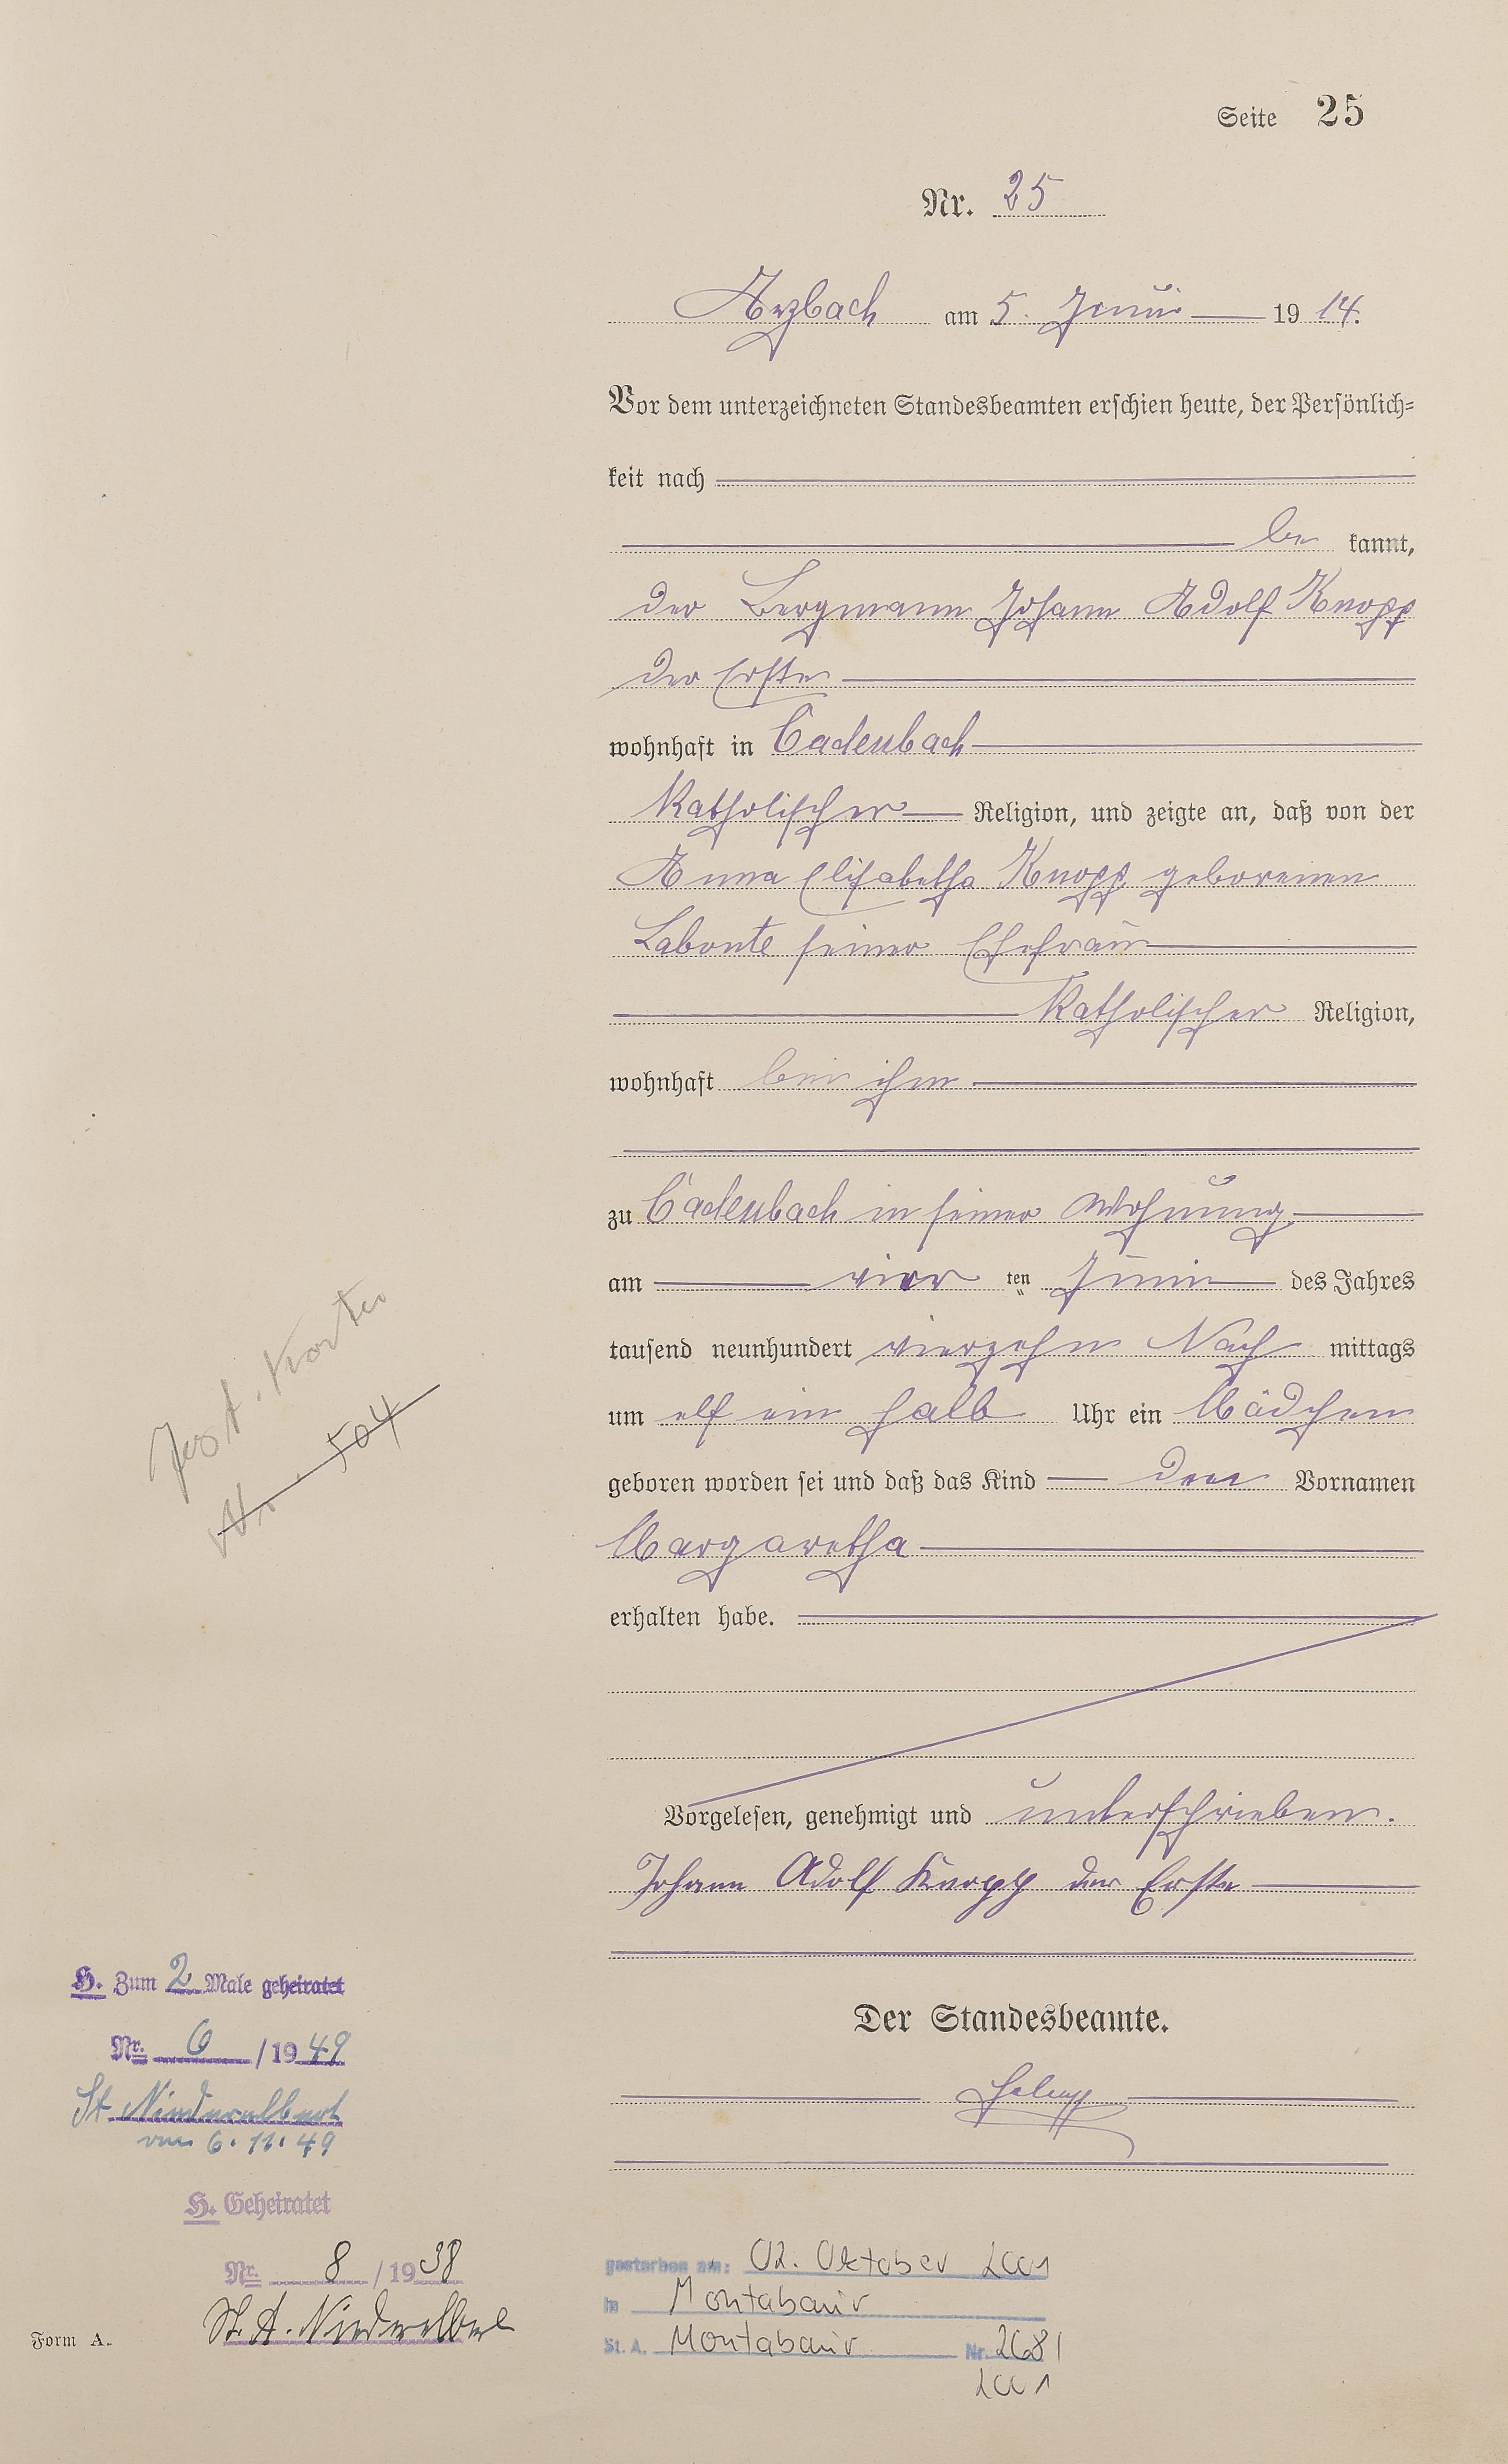 Seite 25
Nr. 25
Arzbach am 5. Juni 1914.
Vor dem unterzeichneten Standesbeamten erschien heute, der Persönlich=
keit nach
be kannt,
der Bergmann Johann Adolf Knopp
der Erste
wohnhaft in Cadenbach
Katholischer Religion, und zeigte an, daß von der
Anna Elisabetha Knopp geborenen
Labonte seiner Ehefrau
Katholischer Religion,
wohnhaft bei ihm
zu Cadenbach in seiner Wohnung
am vier ten Juni des Jahres
tausend neunhundert vierzehn Nach mittags
um elf ein halb Uhr ein Mädchen
geboren worden sei und daß das Kind den Vornamen
Margaretha
erhalten habe.
Vorgelesen, genehmigt und unterschrieben.
Johann Adolf Knopp der Erste
Der Standesbeamte.
504
H. Zum 2 Male geheiratet
Nr. 6 / 1949
St Niederelbert
vom 6.11.49
H. Geheiratet
Nr. 8 / 1938
St. A. Niederelbert
gestorben am: 02. Oktober 2001
in Montabaur
St. A. Montabaur Nr. 268 /
2001
Form A.